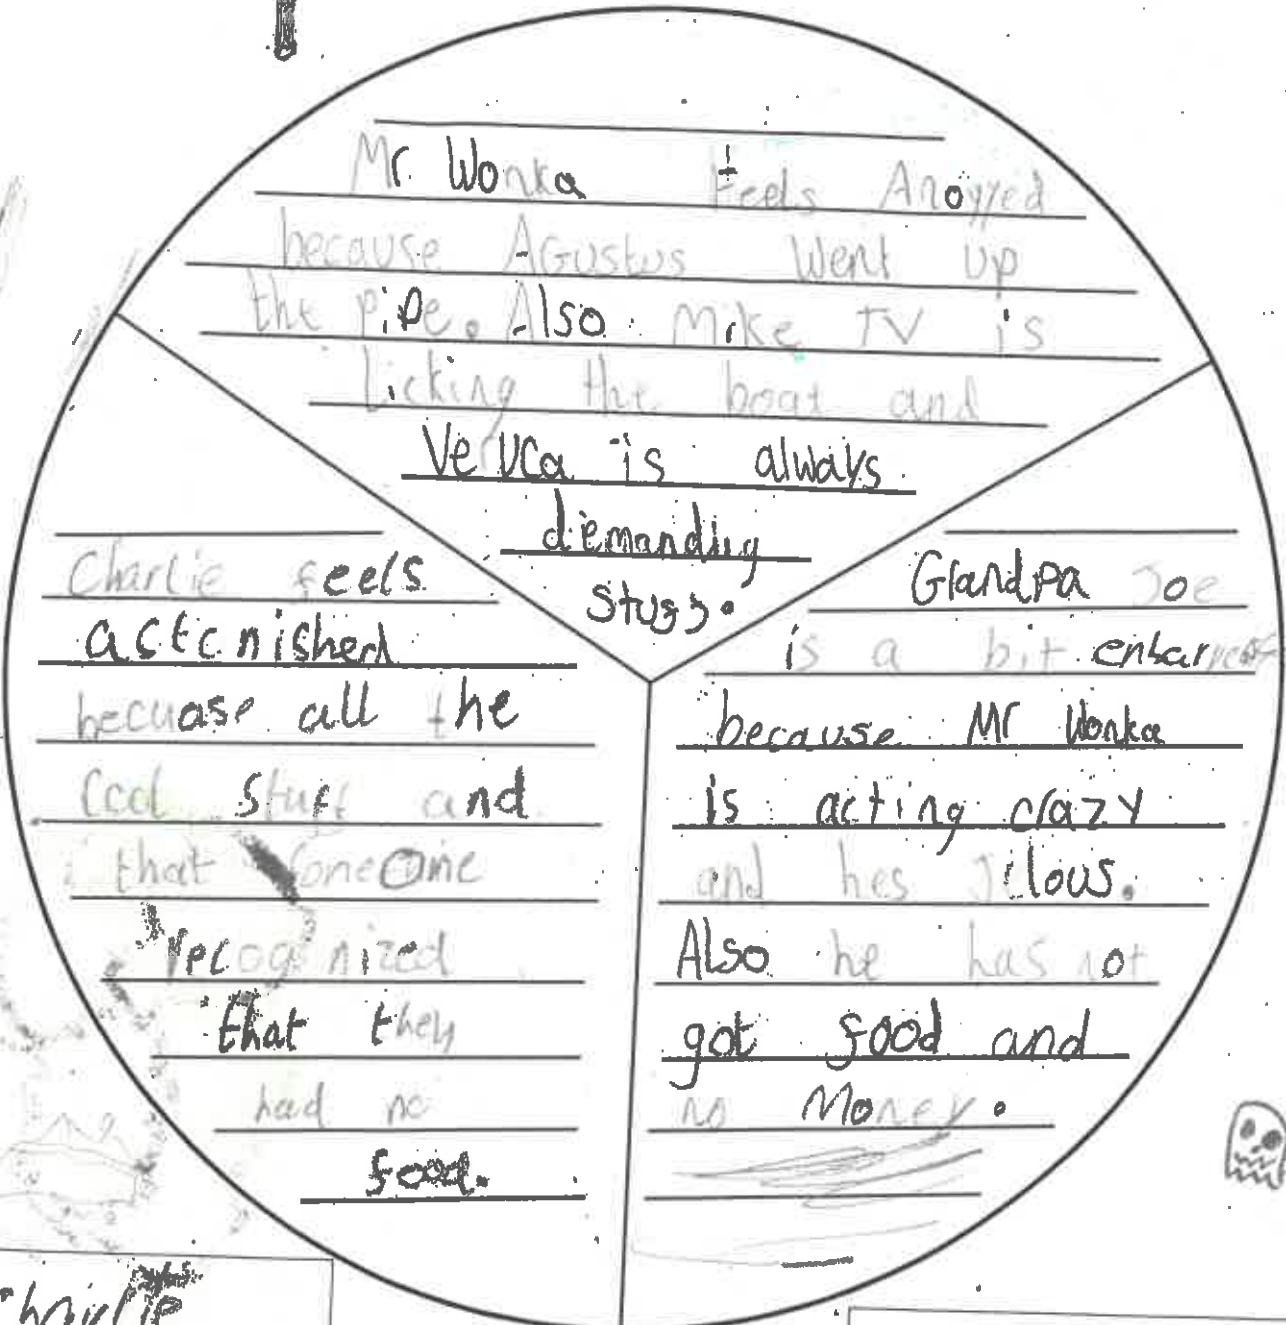 Mr. Wonka feels Anoyyed
because AGustus Went up
the pipe. Also Mike TV is
Licking the boat and
Veruca is always
demanding
stuff.
Charlie feels
astonished
becuase all the
cool stuff and
that someone
recognized
that they
had no
food.
Grandpa Joe
is a bit
because Mr Wonka
is acting crazy
and hes Jelous.
Also he has not
got food and
no Money.
Charlie